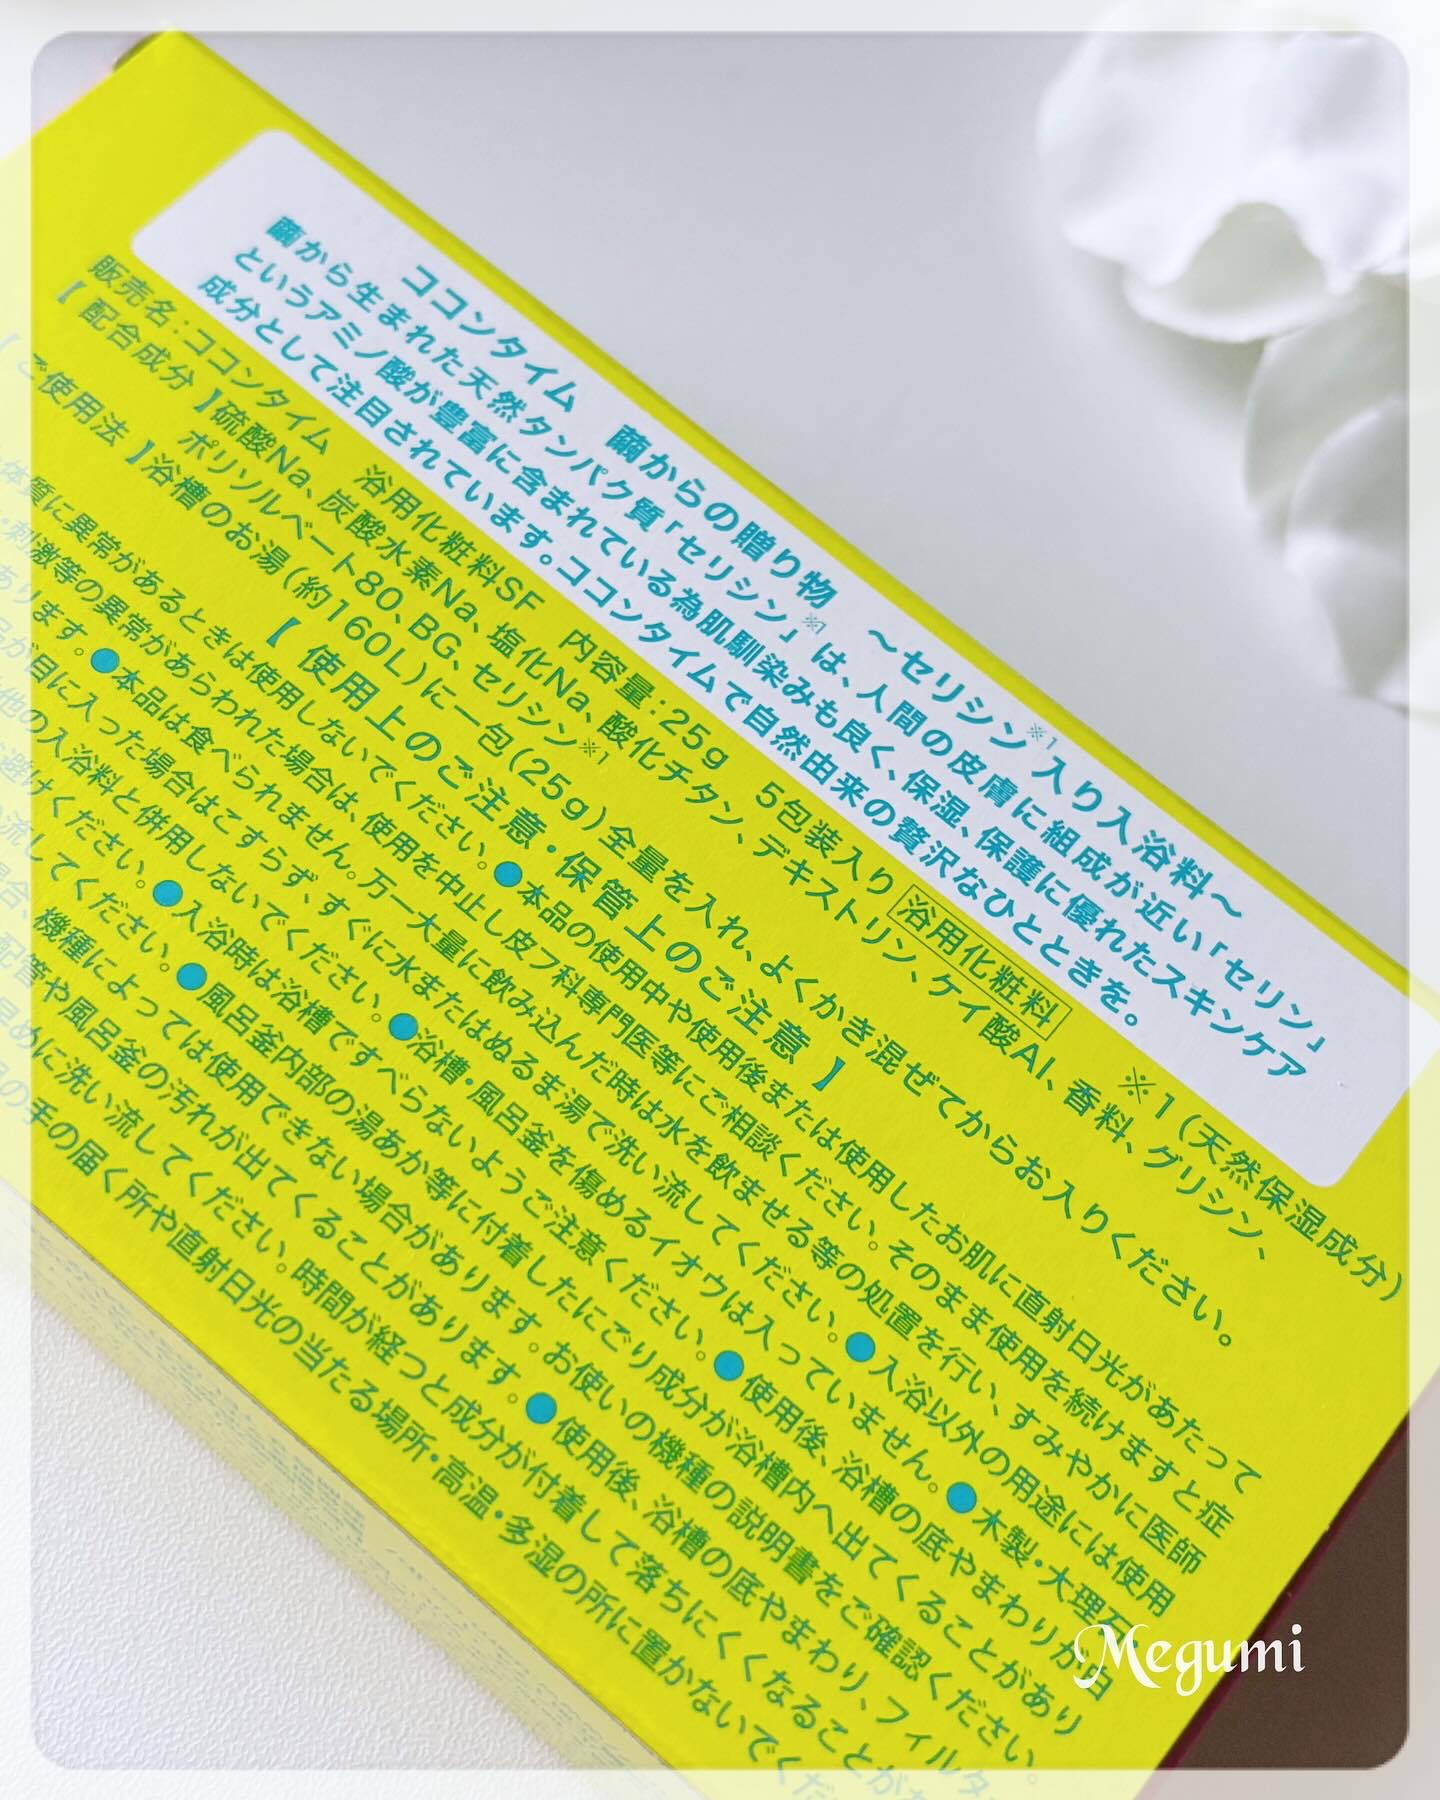 ココンタイム　繭からの贈り物　〜セリシン※1入り入浴料〜
繭から生まれた天然タンパク質「セリシン」※1は、人間の皮膚に組成が近い「セリン」
というアミノ酸が豊富に含まれている為肌馴染みも良く、保湿、保護に優れたスキンケア
成分として注目されています。ココンタイムで自然由来の贅沢なひとときを。
販売名:ココンタイム　浴用化粧料SF　内容量:25g　5包装入り 浴用化粧料　※1(天然保湿成分)
【 配合成分 】硫酸Na、炭酸水素Na、塩化Na、酸化チタン、デキストリン、ケイ酸Al、香料、グリシン、
ポリソルベート80、BG、セリシン※1
【 ご使用法 】浴槽のお湯(約160L)に一包(25g)全量を入れ、よくかき混ぜてからお入りください。
【 使用上のご注意・保管上のご注意 】
体質に異常があるときは使用しないでください。●本品の使用中や使用後または使用したお肌に直射日光があたって
刺激等の異常があらわれた場合は、使用を中止し皮フ科専門医等にご相談ください。そのまま使用を続けますと症
あります。●本品は食べられません。万一大量に飲み込んだ時は水を飲ませる等の処置を行い、すみやかに医師
品が目に入った場合はこすらず、すぐに水またはぬるま湯で洗い流してください。●入浴以外の用途には使用
他の入浴料と併用しないでください。●浴槽・風呂釜を傷めるイオウは入っていません。●木製・大理石
避けください。●入浴時は浴槽ですべらないようご注意ください。●使用後、浴槽の底やまわりが白
流してください。●風呂釜内部の湯あか等に付着したにごり成分が浴槽内へ出てくることがあり
場合、機種によっては使用できない場合があります。お使いの機種の説明書をご確認ください。
配管や風呂釜の汚れが出てくることがあります。●使用後、浴槽の底やまわり、フィルタ
早めに洗い流してください。時間が経つと成分が付着して落ちにくくなることが
の手の届く所や直射日光の当たる場所・高温・多湿の所に置かないでくだ
Megumi